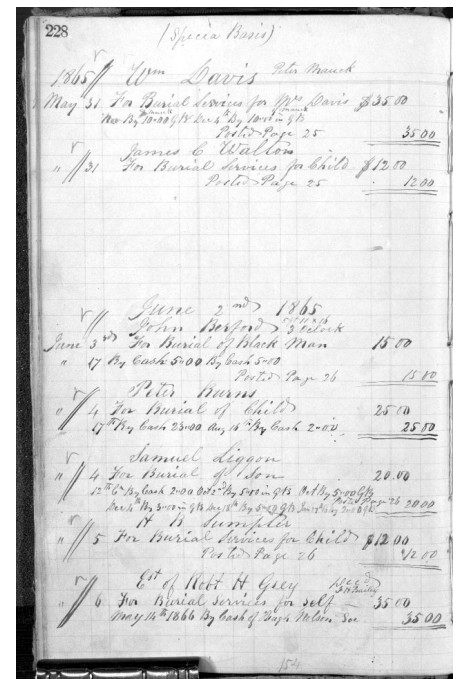 228
(Specia Basis)
1865 Wm Davis Peter Mauck
May 31 For Burial Services for Mrs Davis $35.00
Nov By 10.00 G.B. Dec 4th By 10.00 in G.B
Posted Page 25 35.00
James C Walton
" 31 For Burial Services for Child $12.00
Posted Page 25 12.00
June 2nd 1865
John Berford 3 Oclock
June 3rd For Burial of Black Man 15.00
" 17 By Cash 5.00 By Cash 5.00
Posted Page 26 15.00
Peter Burns
" 4 For Burial of Child 25.00
17th By Cash 23.00 Aug 16th By Cash 2.00 25.00
Samuel Liggon
" 4 For Burial of Son 20.00
12th By Cash 2.00 Oct 2nd By 5.00 in G.B. Oct By 5.00 G.B
Dec 4th By 5.00 in G.B. Dec 18th By G.B. By 2.00 Posted Page 26 20.00
H B Sumpter
" 5 For Burial Services for Child $12.00
Posted Page 26 12.00
Est of Robt H Grey
" 6 For Burial Services for Self 35.00
May 14th 1866 By Cash of Hugh Nelson 35.00
154